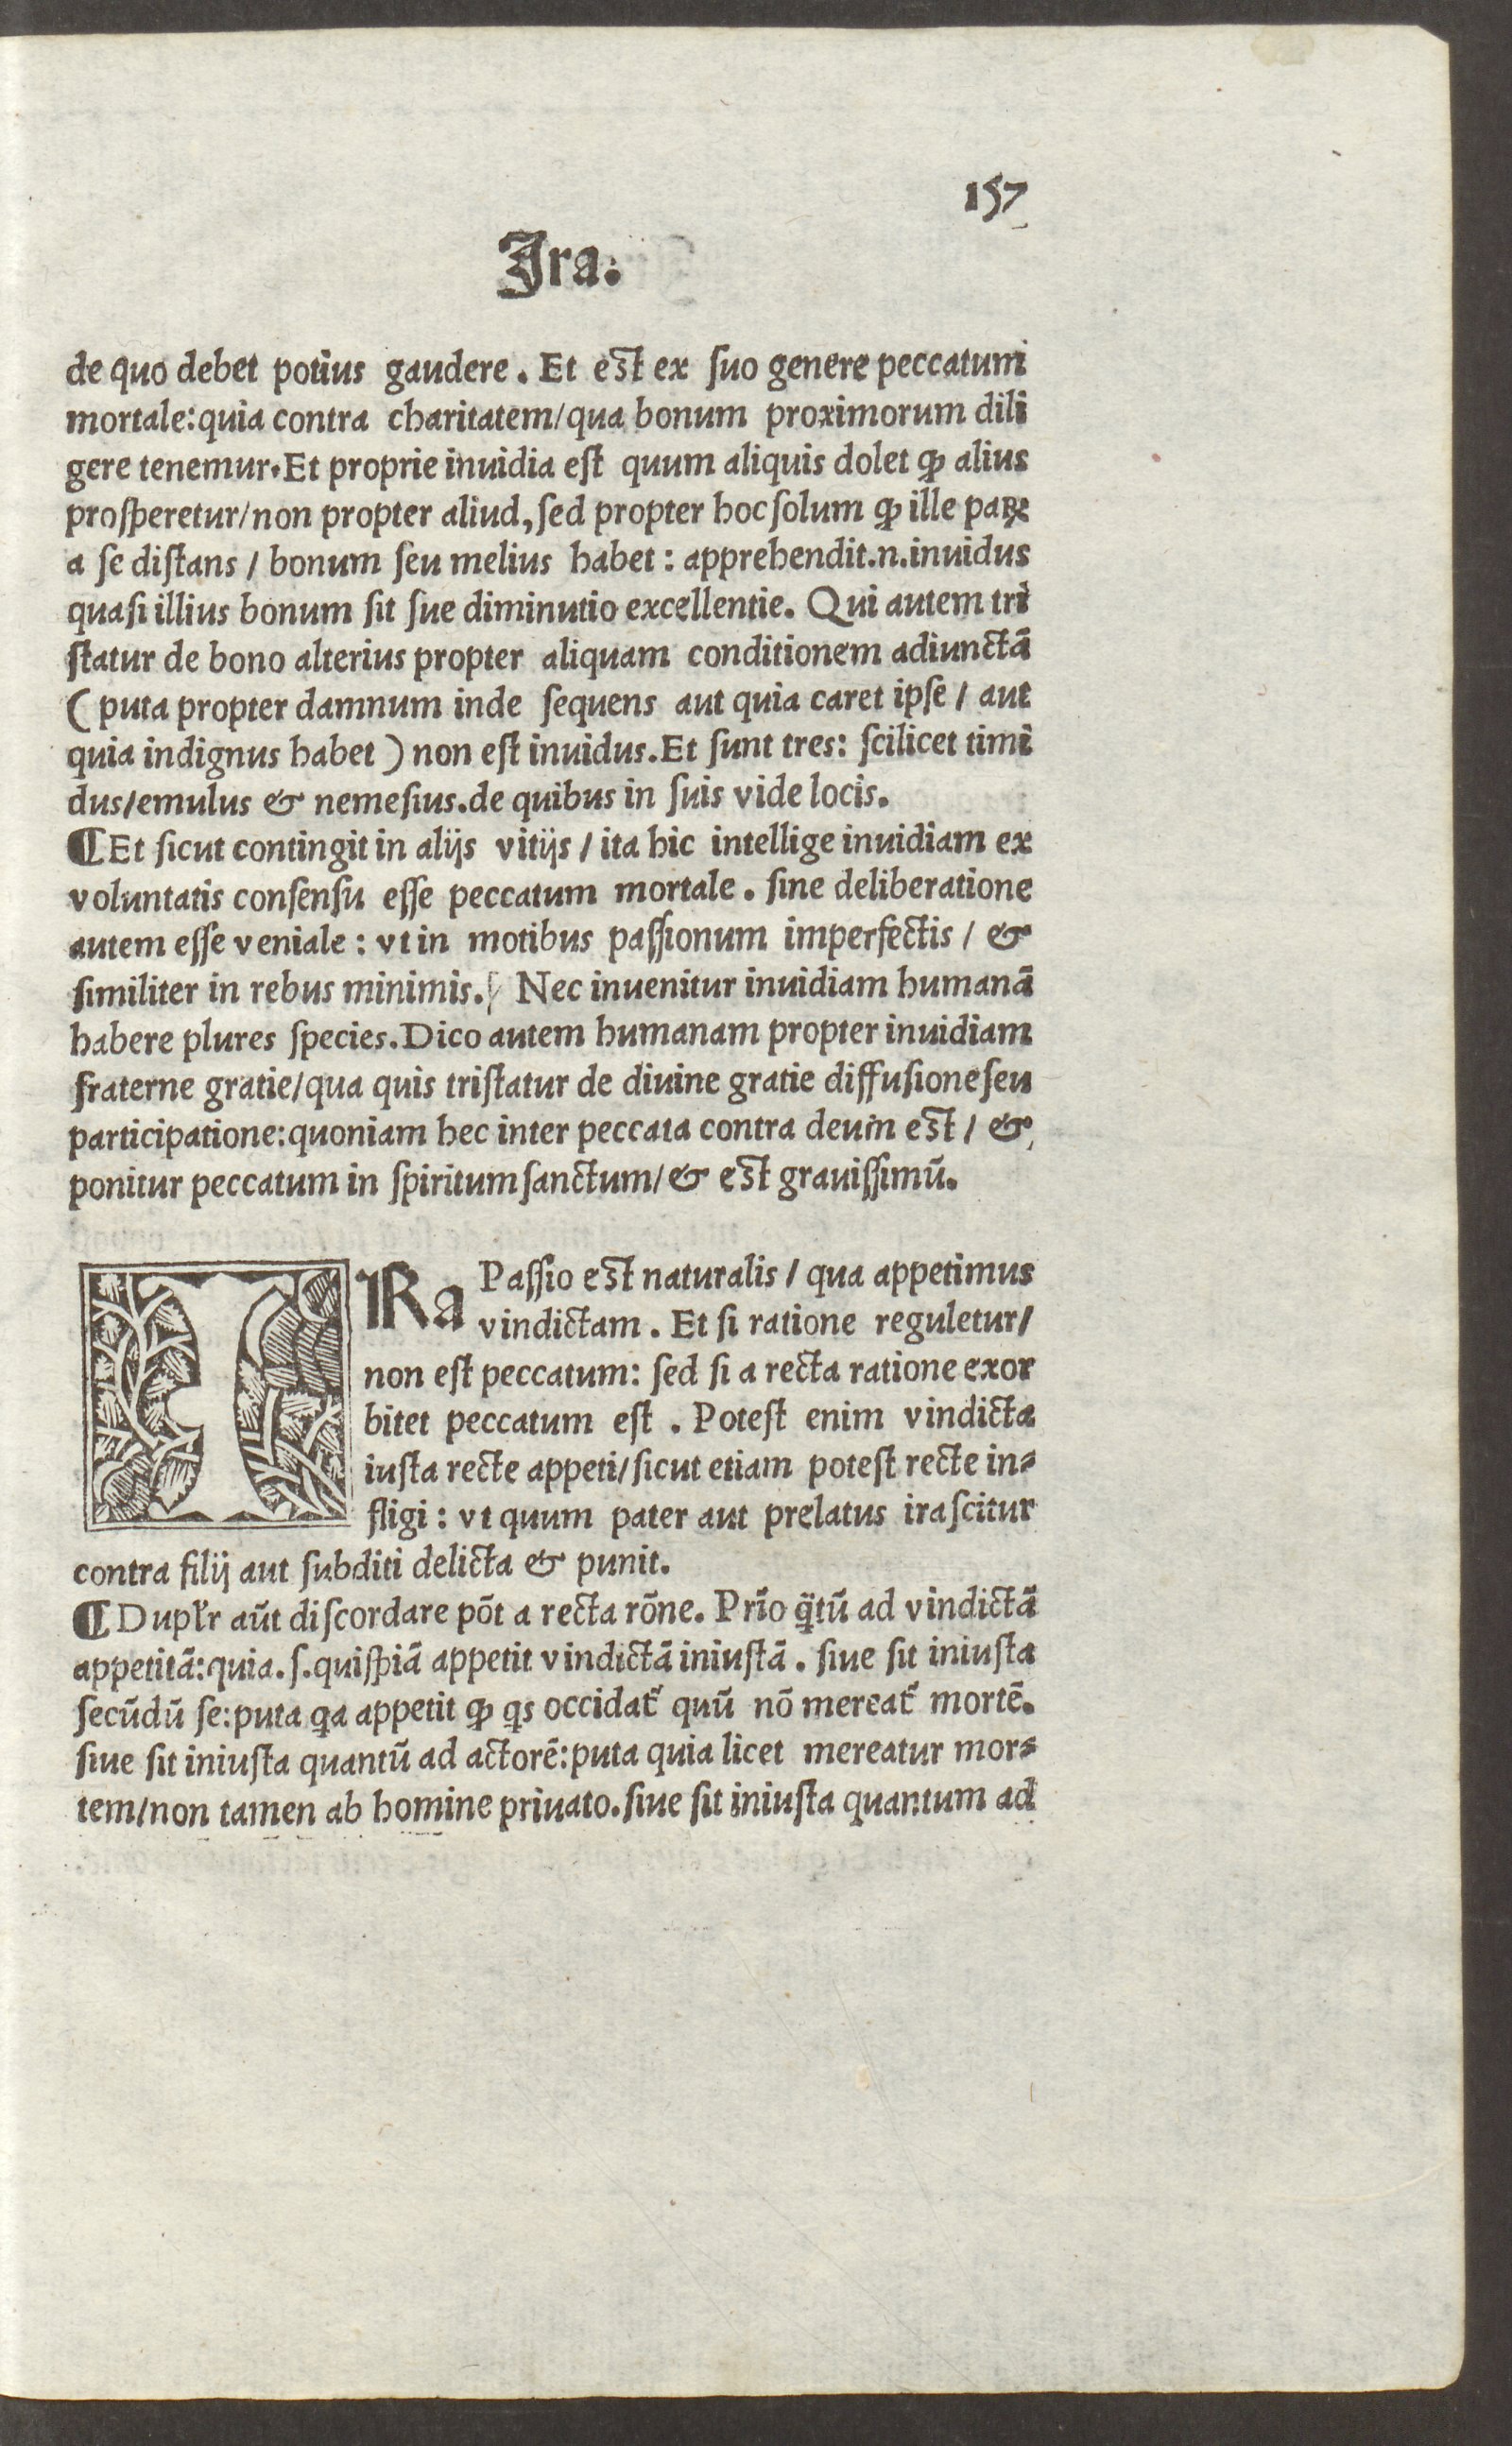 157
Ira.
de quo debet potius gaudere. Et est ex ſuo genere peccatum
mortale: quia contra charitatem/qua bonum proximorum dili
gere tenemur. Et proprie inuidia eſt quum aliquis dolet ꝙ alius
proſperetur/non propter aliud, ſed propter hoc ſolum ꝙ ille paꝝ
a ſe diſtans / bonum ſeu melius habet : apprehendit.n.inuidus
quaſi illius bonum ſit ſue diminutio excellentie. Qui autem tri
ſtatur de bono alterius propter aliquam conditionem adiunctã
( puta propter damnum inde ſequens aut quia caret ipſe / aut
quia indignus habet ) non eſt inuidus. Et ſunt tres: ſcilicet timi
dus/emulus & nemeſius. de quibus in ſuis vide locis.
¶ Et ſicut contingit in alijs vitijs / ita hic intellige inuidiam ex
voluntatis conſenſu eſſe peccatum mortale. ſine deliberatione
autem eſſe veniale : vt in motibus paſſionum imperfectis / &
ſimiliter in rebus minimis. Nec inuenitur inuidiam humanã
habere plures ſpecies. Dico autem humanam propter inuidiam
fraterne gratie/qua quis triſtatur de diuine gratie diffuſione ſeu
participatione: quoniam hec inter peccata contra deum est / &
ponitur peccatum in ſpiritum ſanctum/& est grauiſſimũ.
IRa Paſſio est naturalis / qua appetimus
vindictam. Et ſi ratione reguletur/
non eſt peccatum: ſed ſi a recta ratione exor
bitet peccatum eſt. Poteſt enim vindicta
iuſta recte appeti/ſicut etiam poteſt recte in⸗
fligi : vt quum pater aut prelatus iraſcitur
contra filij aut ſubditi delicta & punit.
¶ Dupľr aũt diſcordare põt a recta rõne. Prĩo q̃tũ ad vindictã
appetitã: quia.ſ.quiſpiã appetit vindictã iniuſtã. ſiue ſit iniuſta
ſecũdũ ſe: puta qa appetit ꝙ qs occidat᷑ quũ nõ mereat᷑ mortẽ.
ſiue ſit iniuſta quantũ ad actorẽ: puta quia licet mereatur mor⸗
tem/non tamen ab homine priuato. ſiue ſit iniuſta quantum ad